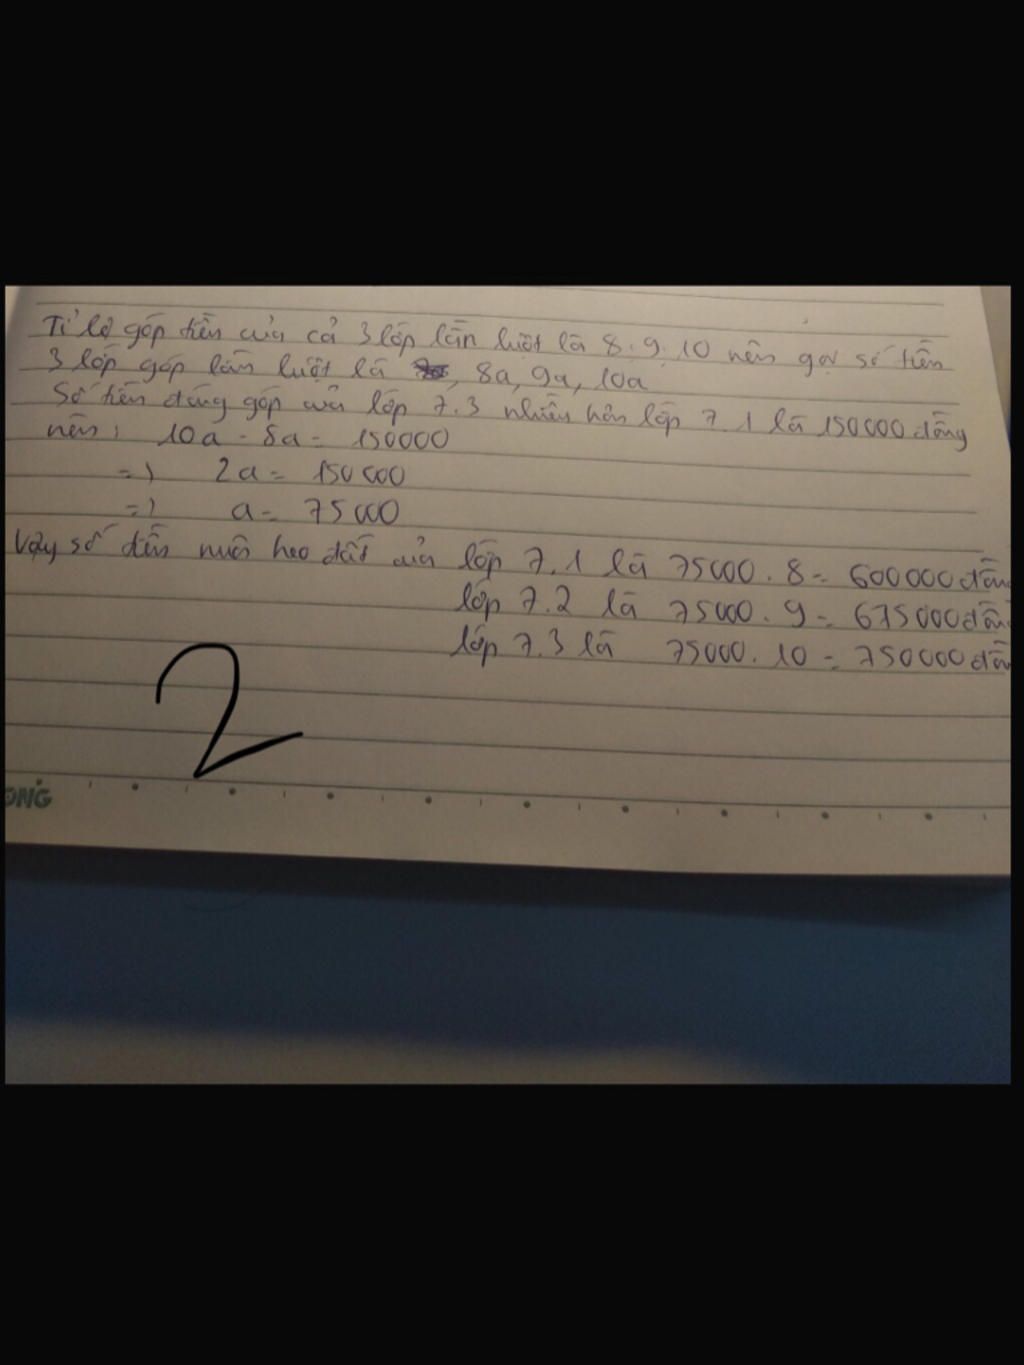 Tỉ lệ góp tiền của cả 3 lớp lần lượt là 8:9:10 nên gọi số tiền
3 lớp góp lần lượt là 8a, 9a, 10a
Số tiền đóng góp của lớp 7.3 nhiều hơn lớp 7.1 là 150000 đồng
nên: 10a - 8a = 150000
=> 2a = 150000
=> a = 75000
Vậy số tiền nuôi heo đất của lớp 7.1 là 75000.8 = 600000 đồng
lớp 7.2 là 75000.9 = 675000 đồng
lớp 7.3 là 75000.10 = 750000 đồng
2
ONG